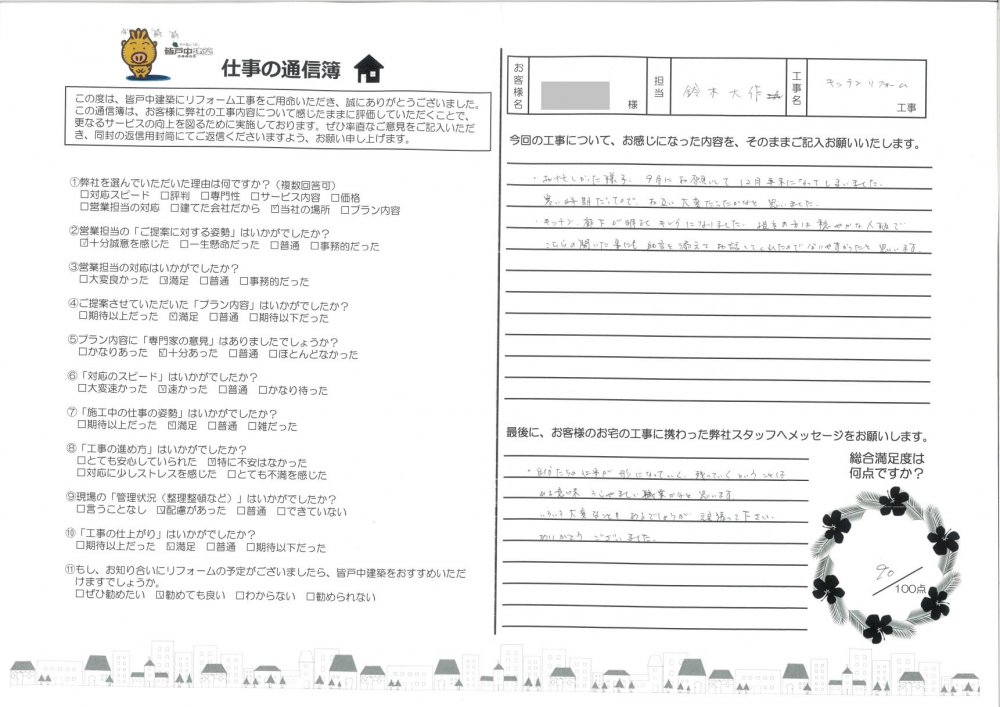 皆戸中建築
仕事の通信簿
この度は、皆戸中建築にリフォーム工事をご用命いただき、誠にありがとうございました。
この通信簿は、お客様に弊社の工事内容について感じたままに評価していただくことで、
更なるサービスの向上を図るために実施しております。ぜひ率直なご意見をご記入いただ
き、同封の返信用封筒にてご返信くださいますよう、お願い申し上げます。
①弊社を選んでいただいた理由は何ですか？（複数回答可）
□対応スピード □評判 □専門性 □サービス内容 □価格
□営業担当の対応 □建てた会社だから ☑当社の場所 □プラン内容
②営業担当の「ご提案に対する姿勢」はいかがでしたか？
☑十分誠意を感じた □一生懸命だった □普通 □事務的だった
③営業担当の対応はいかがでしたか？
□大変良かった ☑満足 □普通 □事務的だった
④ご提案させていただいた「プラン内容」はいかがでしたか？
□期待以上だった ☑満足 □普通 □期待以下だった
⑤プラン内容に「専門家の意見」はありましたでしょうか？
□かなりあった ☑十分あった □普通 □ほとんどなかった
⑥「対応のスピード」はいかがでしたか？
□大変速かった ☑速かった □普通 □かなり待った
⑦「施工中の仕事の姿勢」はいかがでしたか？
□期待以上だった ☑満足 □普通 □雑だった
⑧「工事の進め方」はいかがでしたか？
□とても安心していられた ☑特に不安はなかった
□対応に少しストレスを感じた □とても不満を感じた
⑨現場の「管理状況（整理整頓など）」はいかがでしたか？
□言うことなし ☑配慮があった □普通 □できていない
⑩「工事の仕上がり」はいかがでしたか？
□期待以上だった ☑満足 □普通 □期待以下だった
⑪もし、お知り合いにリフォームの予定がございましたら、皆戸中建築をおすすめいただ
けますでしょうか。
□ぜひ勧めたい ☑勧めても良い □わからない □勧められない
お客様名 様 担当 鈴木大作 工事名 キッチンリフォーム 工事
今回の工事について、お感じになった内容を、そのままご記入お願いいたします。
・お忙しかった様子、9月にお願いして12月年末になってしまいました。
寒い時期だったので、お互い大変だったかなと思いました。
・キッチン、廊下が明るくキレイになりました。担当の方は穏やかな人柄で
こちらの聞いた事にも助言を添えてお話してくれたので分いやすかったと思います。
最後に、お客様のお宅の工事に携わった弊社スタッフへメッセージをお願いします。
・自分たちの仕事が形になっていく、残っていくということは
ある意味うらやましい職業かなと思います
いろいろ大変なこともあるでしょうが頑張って下さい。
ありがとうございました。
総合満足度は
何点ですか？
90
100点